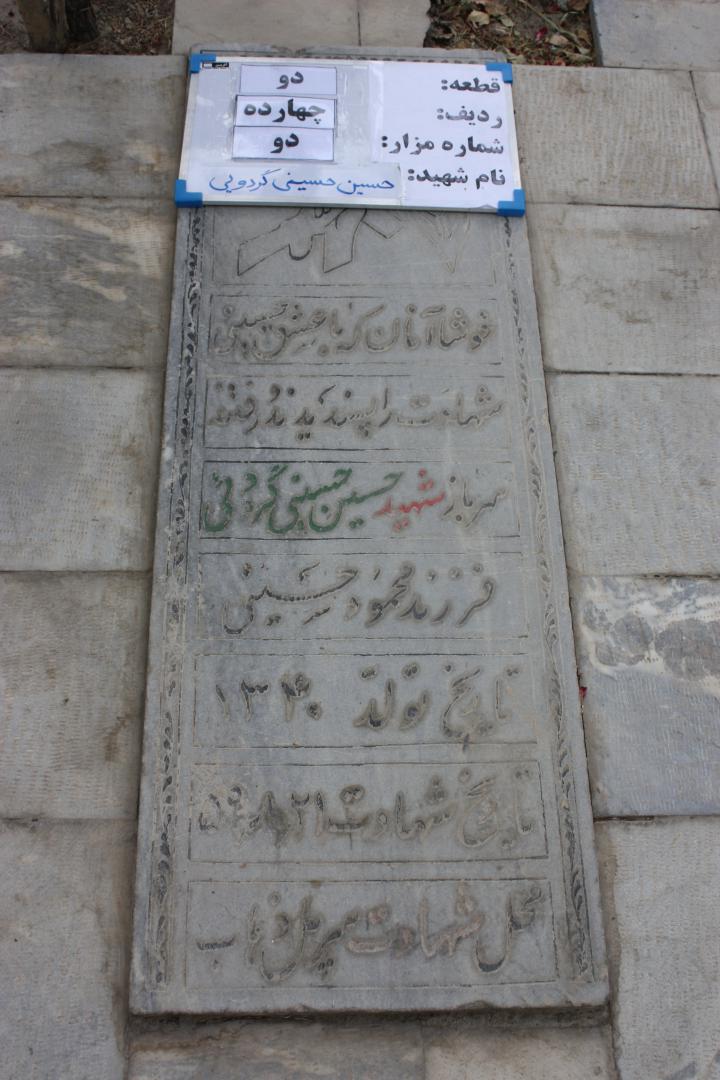 قطعه: دو
ردیف: چهارده
شماره مزار: دو
نام شهید: حسین حسینی گردویی
خوشا آنان که با عشق حسینی
شهادت را پسندیدند و رفتند
سرباز شهید حسین حسینی گردوئی
فرزند محمود حسینی
تاریخ تولد ۱۳۴۰
تاریخ شهادت ۲۱
محل شهادت سرپل ذهاب